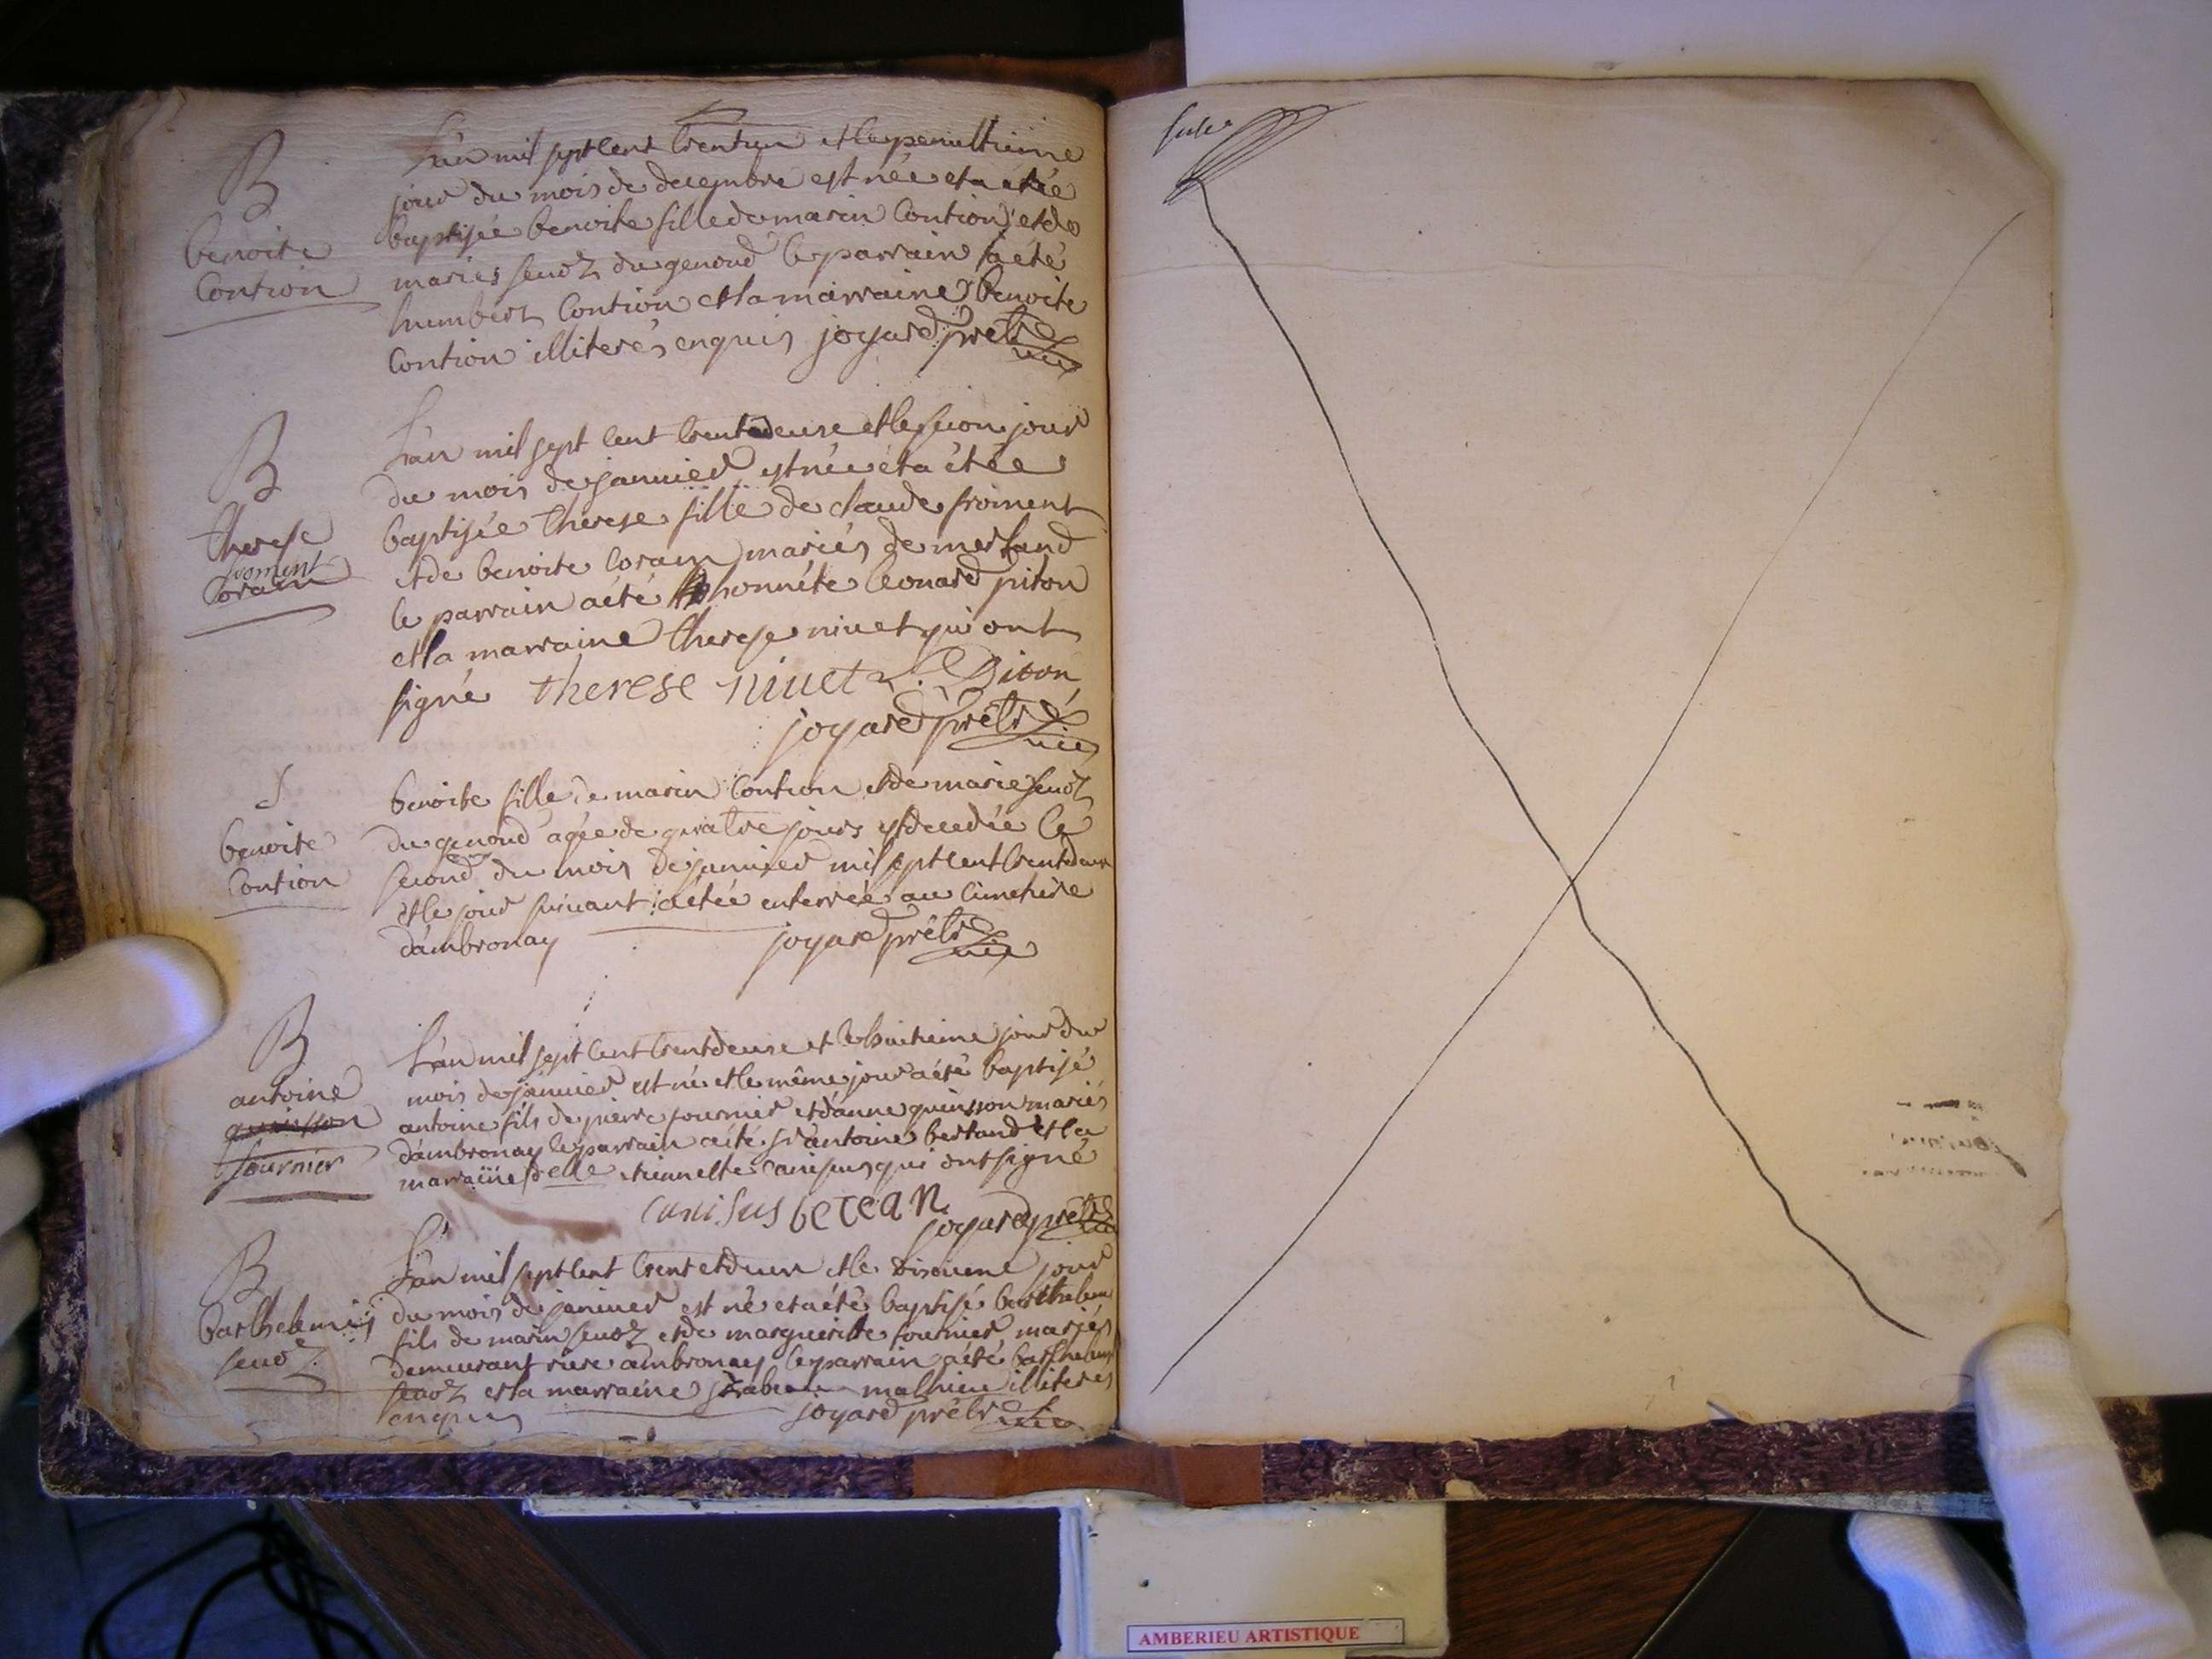 B
benoite
Contion
L'an mil sept cent trentun et le penultieme
jour du mois de decembre est née et a étée
baptisée benoite fille de marin Contion et de
maries seuoz du genoud le parrain a été
humbert Contion et la marraine benoite
Contion illiterés enquis joyard prêtre vic
B
therese
froment
Corain
L'an mil sept cent trentedeuxe et le second jour
du mois de januier est née et a étée
baptisée therese fille de claude froment
et de benoite Corain mariés de merland
le parrain a été honnéte leonard piton
et la marraine therese niuet qui ont
signé therese niuet L. Piton
joyard prêtre vic
S
benoite
Contion
benoite fille de marin Contion et de marie seuoz
du genoud agée de quatre jours est decedée le
second du mois de januier mil sept cent trentedeux
et le jour suiuant a étée enterrée au Cimetiere
d'ambronay joyard prêtre vic
B
antoine
quinsson
fournier
L'an mil sept cent trentdeuxe et le huitieme jour du
mois de januier est né et le même jour a été baptisé
antoine fils de pierre fournier et d'anne quinsson mariés
d'ambronay le parrain a été sr antoine bertand et la
marraine delle canisus qui ont signé
canisus betean
joyard prêtre
B
barthelemij
seuoz
L'an mil sept cent trent et deux et le jour
du mois de januier est né et a été baptisé barthelem
fils de marin seuoz et de marguerite fournier mariés
demeurant riere ambronay le parrain a été barthelem
seuoz et la marraine mathieu illiterés
enquis joyard prêtre vic
AMBERIEU ARTISTIQUE